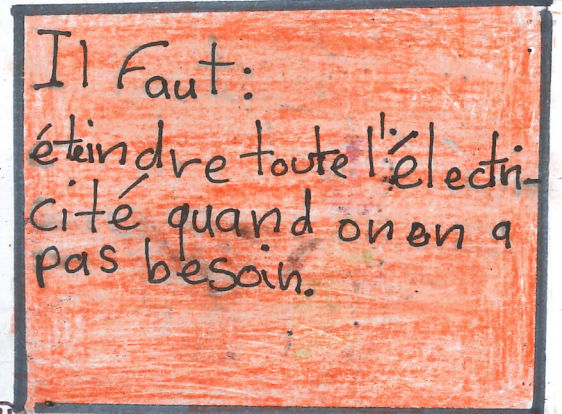 Il Faut:
éteindre toute l'électri-
cité quand on en a
pas besoin.